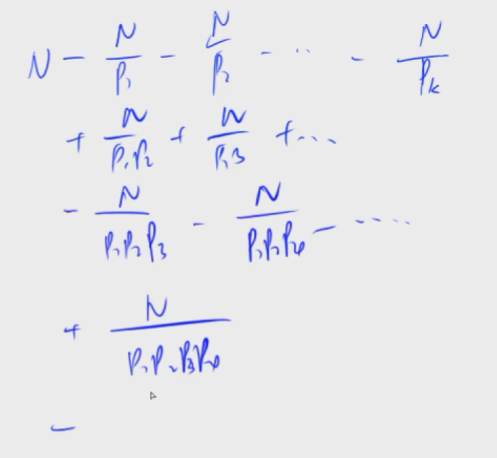 N - N/P₁ - N/P₂ - ... - N/Pₖ
+ N/P₁P₂ + N/P₁3 + ...
- N/P₁P₂P₃ - N/P₁P₂P₄ - ....
+ N/P₁P₂P₃P₄
-